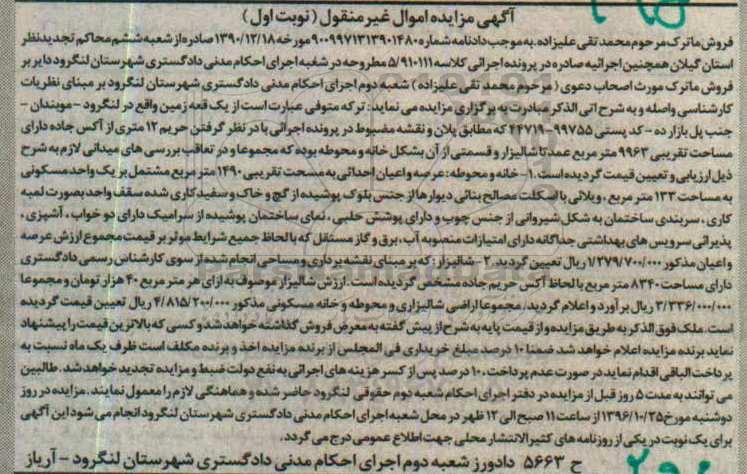 آگهی مزایده اموال غیر منقول (نوبت اول)
فروش ماترک مرحوم محمد تقی علیزاده. به موجب دادنامه شماره ۹۰۰۹۹۷۱۳۱۳۹۰۱۴۸۰ مورخه ۱۳۹۰/۱۲/۱۸ صادره از شعبه ششم محاکم تجدیدنظر
استان گیلان همچنین اجرائیه صادره در پرونده اجرائی کلاسه ۵/۹۱۰۱۱۱ مطروحه در شعبه اجرای احکام مدنی دادگستری شهرستان لنگرود دایر بر
فروش ماترک مورث اصحاب دعوی (مرحوم محمد تقی علیزاده) شعبه دوم اجرای احکام مدنی دادگستری شهرستان لنگرود بر مبنای نظریات
کارشناسی واصله و به شرح آتی الذکر مبادرت به برگزاری مزایده می نماید: ترکه متوفی عبارت است از یک قعه زمین واقع در لنگرود - موبندان -
جنب پل بازار ده - کد پستی ۹۹۷۵۵-۴۴۷۱۹ که مطابق پلان و نقشه مضبوط در پرونده اجرائی با در نظر گرفتن حریم ۱۲ متری از آکس جاده دارای
مساحت تقریبی ۹۹۶۳ متر مربع عمدتا شالیزار و قسمتی از آن بشکل خانه و محوطه بوده که مجموعا و در تعاقب بررسی های میدانی لازم به شرح
ذیل ارزیابی و تعیین قیمت گردیده است. ۱- خانه و محوطه: عرصه و اعیان احداثی به مسحت تقریبی ۱۴۹۰ متر مربع مشتمل بر یک واحد مسکونی
به مساحت ۱۳۳ متر مربع، ویلائی با اسکلت مصالح بنائی دیوارها از جنس بلوک پوشیده از گچ و خاک و سفید کاری شده سقف واحد بصورت لمبه
کاری، سربندی ساختمان به شکل شیروانی از جنس چوب و دارای پوشش حلبی، نمای ساختمان پوشیده از سرامیک دارای دو خواب، آشپزی،
پذیرائی سرویس های بهداشتی جداگانه دارای امتیازات منصوبه آب، برق و گاز مستقل که با لحاظ جمیع شرایط موثر بر قیمت مجموع ارزش عرصه
و اعیان مذکور ۱/۲۷۹/۷۰۰/۰۰۰ ریال تعیین گردید. ۲- شالیزار: که بر مبنای نقشه برداری و مساحی انجام شده از سوی کارشناس رسمی دادگستری
دارای مساحت ۸۳۴۰ متر مربع با لحاظ آکس حریم جاده مشخص گردیده است. ارزش شالیزار موصوف به ازای هر متر مربع ۴۰ هزار تومان و مجموعا
۳/۳۳۶/۰۰۰/۰۰۰ ریال بر آورد و اعلام گردید. مجموعا اراضی شالیزاری و محوطه و خانه مسکونی مذکور ۴/۸۱۵/۲۰۰/۰۰۰ ریال تعیین قیمت گردیده
است. ملک فوق الذکر به طریق مزایده و از قیمت پایه به شرح از پیش گفته به معرض فروش گذاشته خواهد شد و کسی که بالاترین قیمت را پیشنهاد
نماید برنده مزایده اعلام خواهد شد. ضمنا ۱۰ درصد مبلغ خریداری فی المجلس از برنده مزایده اخذ و برنده مکلف است ظرف یک ماه نسبت به
پرداخت الباقی اقدام نماید در صورت عدم پرداخت، ۱۰ درصد پس از کسر هزینه های اجرائی به نفع دولت ضبط و مزایده تجدید خواهد شد. طالبین
می توانند به مدت ۵ روز قبل از مزایده در دفتر اجرای احکام شعبه دوم حقوقی لنگرود حاضر شده و هماهنگی لازم را معمول نمایند. مزایده در روز
دوشنبه مورخ ۱۳۹۶/۱۰/۲۵ از ساعت ۱۱ صبح الی ۱۲ ظهر در محل شعبه اجرای احکام مدنی دادگستری شهرستان لنگرود انجام می شود این آگهی
برای یک نوبت در یکی از روزنامه های کثیرالانتشار محلی جهت اطلاع عمومی درج می گردد.
ح ۵۶۶۳ دادورز شعبه دوم اجرای احکام مدنی دادگستری شهرستان لنگرود - آریاز